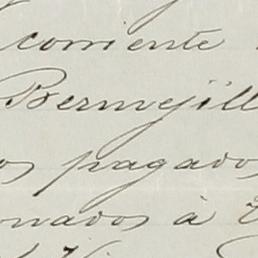 corriente
Bermejill
os pagados
onados à